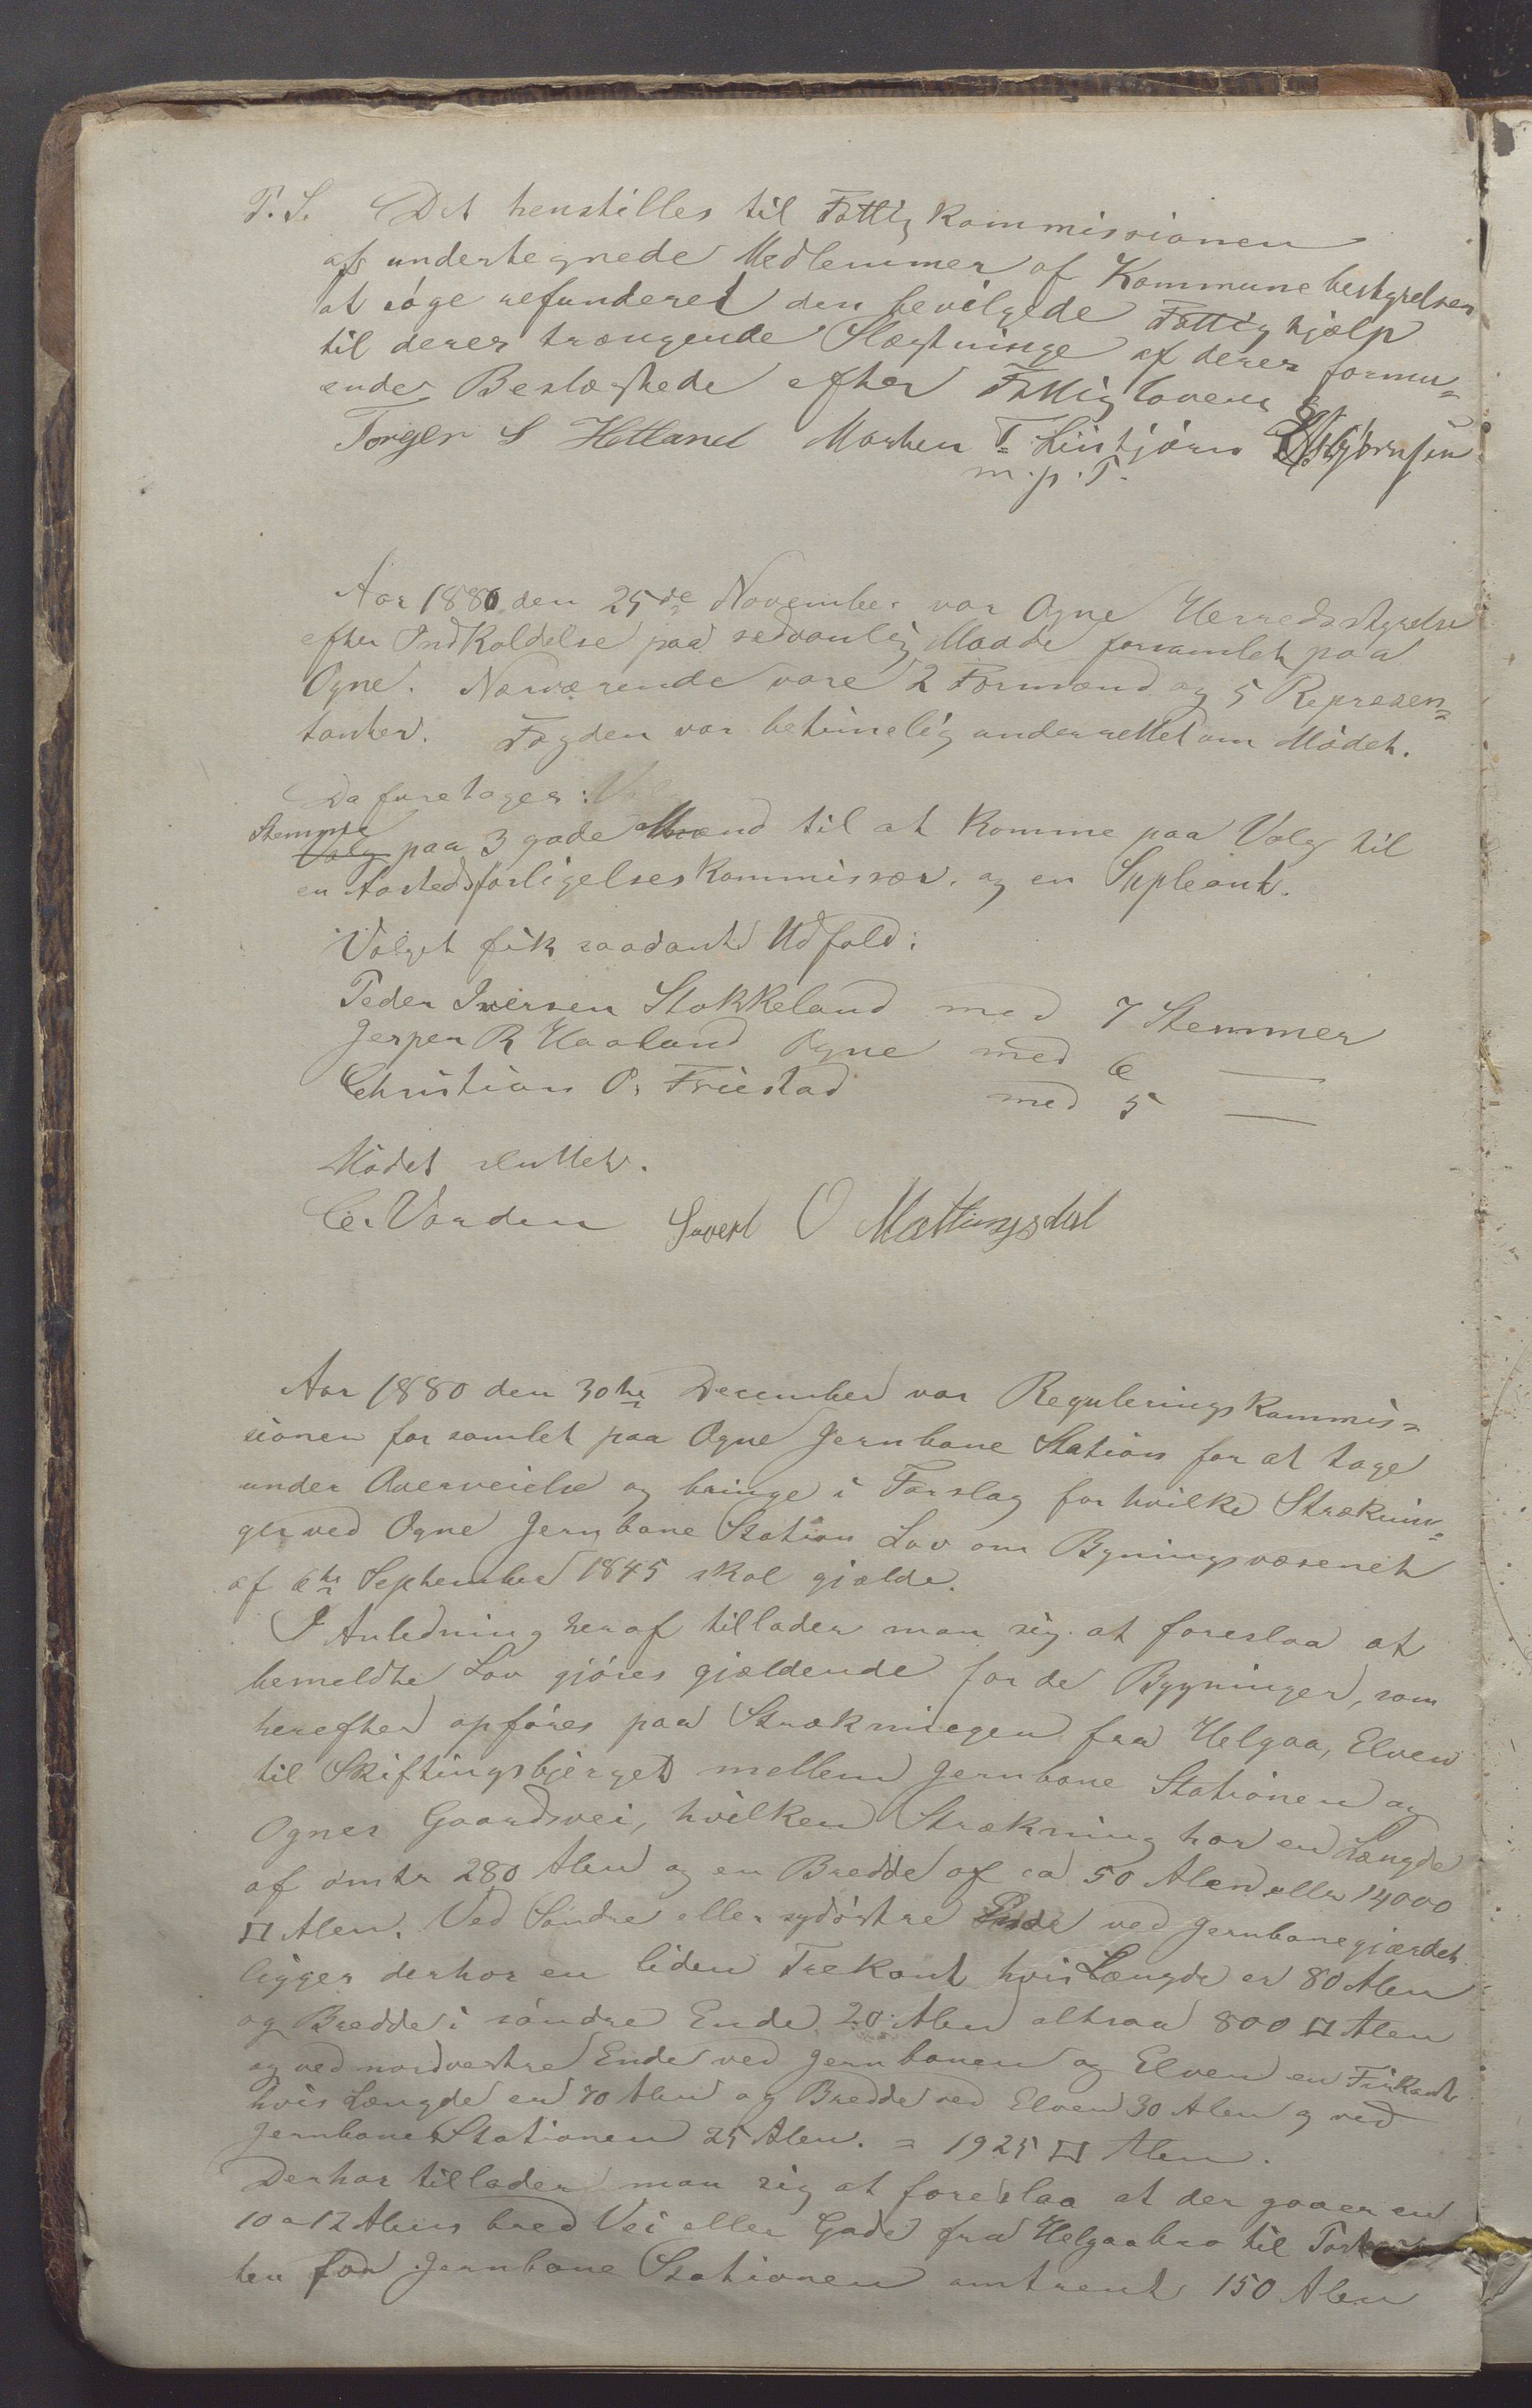 P. S. Det henstilles til Fattigkommissionen
af undertegnede Medlemmer af Kommunebestyrelsen
at söge refunderet den bevilgede Fattighjælp
til deres trængende Slægtninge af deres formu=
ende Beslægtede efter Fattigloven §
Torger S Hetland Morten T. Liistjörn Asbjørnsen
m. p. T.
Aar 1880 den 25de November var Ogne Herredsstyrelse
efter Indkaldelse paa sedvanlig Maade forsamlet paa
Ogne. Nærværende vare 2 Formænd og 5 Represen=
tanter. Fogden var betimelig underrettet om Mödet.
Da foretoges: Valg
Stemme
Valg paa 3 gode Mænd til at komme paa Valg til
en Aastedsforligelseskommissær. og en Supleant.
Valget fik saadant Udfald:
Peder Iversen Stokkeland med 7 Stemmer
Jesper R Haaland Ogne med 6 —
Christian O. Friestad med 5 —
Mödet sluttet.
C. Varden Sivert O Mattingsdal
Aar 1880 den 30te December var Reguleringskommis=
sionen forsamlet paa Ogne Jernbane Station for at tage
under Overveielse og bringe i Forslag for hvilke Stræknin=
ger ved Ogne Jernbane Station Lov om Bygningsvæsenet
af 6te September 1845 skal gjælde.
I Anledning heraf tillader man sig at foreslaa at
bemeldte Lov gjöres gjældende for de Bygninger, som
herefter opföres paa Strækningen fra Helgaa, Elven
til Skiftingsbjerget mellem Jernbane Stationen og
Ognes Gaardsvei, hvilken Strækning har en Længde
af omtr 280 Alen og en Bredde af ca 50 Alen eller 14000
□ Alen. Ved Söndre eller sydöstre Ende ved Jernbanegjærdet
ligger derhos en liden Trekant hvis Længde er 80 Alen
og Bredde i söndre Ende 20 Alen altsaa 800 □ Alen
og ved nordvestre Ende ved Jernbanen og Elven en Firkant
hvis Længde er 70 Alen og Bredde ved Elven 30 Alen og ved
Jernbane Stationen 25 Alen. = 1925 □ Alen.
Derhos tillader man sig at foreslaa at der gaaer en
10 a 12 Alens bred Vei eller Gade fra Helgaabro til
ten for Jernbane Stationen omtrent 150 Alen